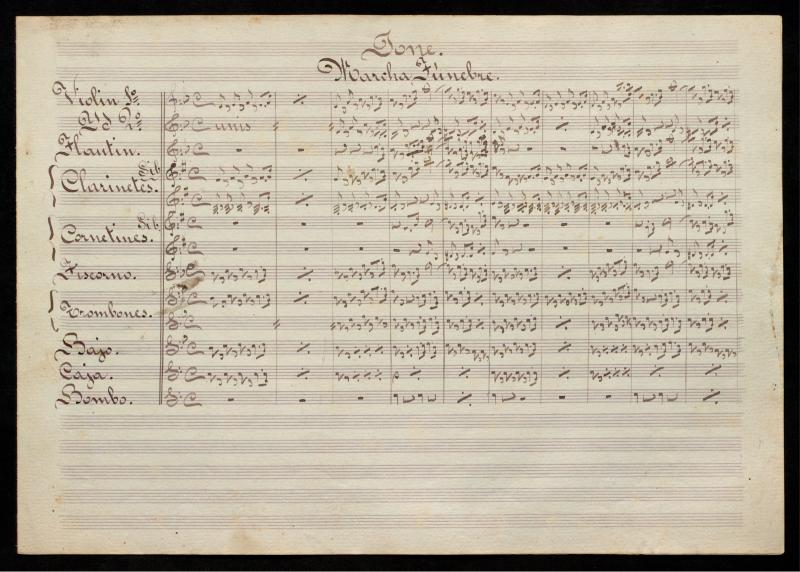 Jone.
Marcha Fúnebre.
Violin 1º.
Id 2º
unis
Flautin.
Clarinetes.
Sib
Cornetines.
Sib
Fiscorno.
Trombones.
Bajo.
Caja.
Bombo.